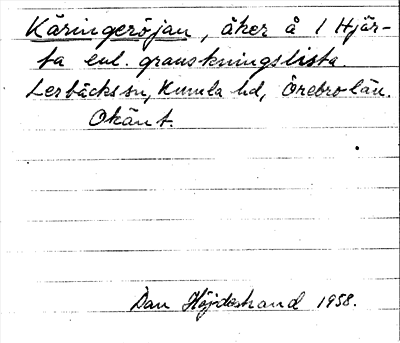 Käringeröjan, åker å 1 Hjär-
ta enl. granskningslista
Lerbäcks sn, Kumla hd, Örebro län.
Okänt.
Dan Höjdestrand 1958.